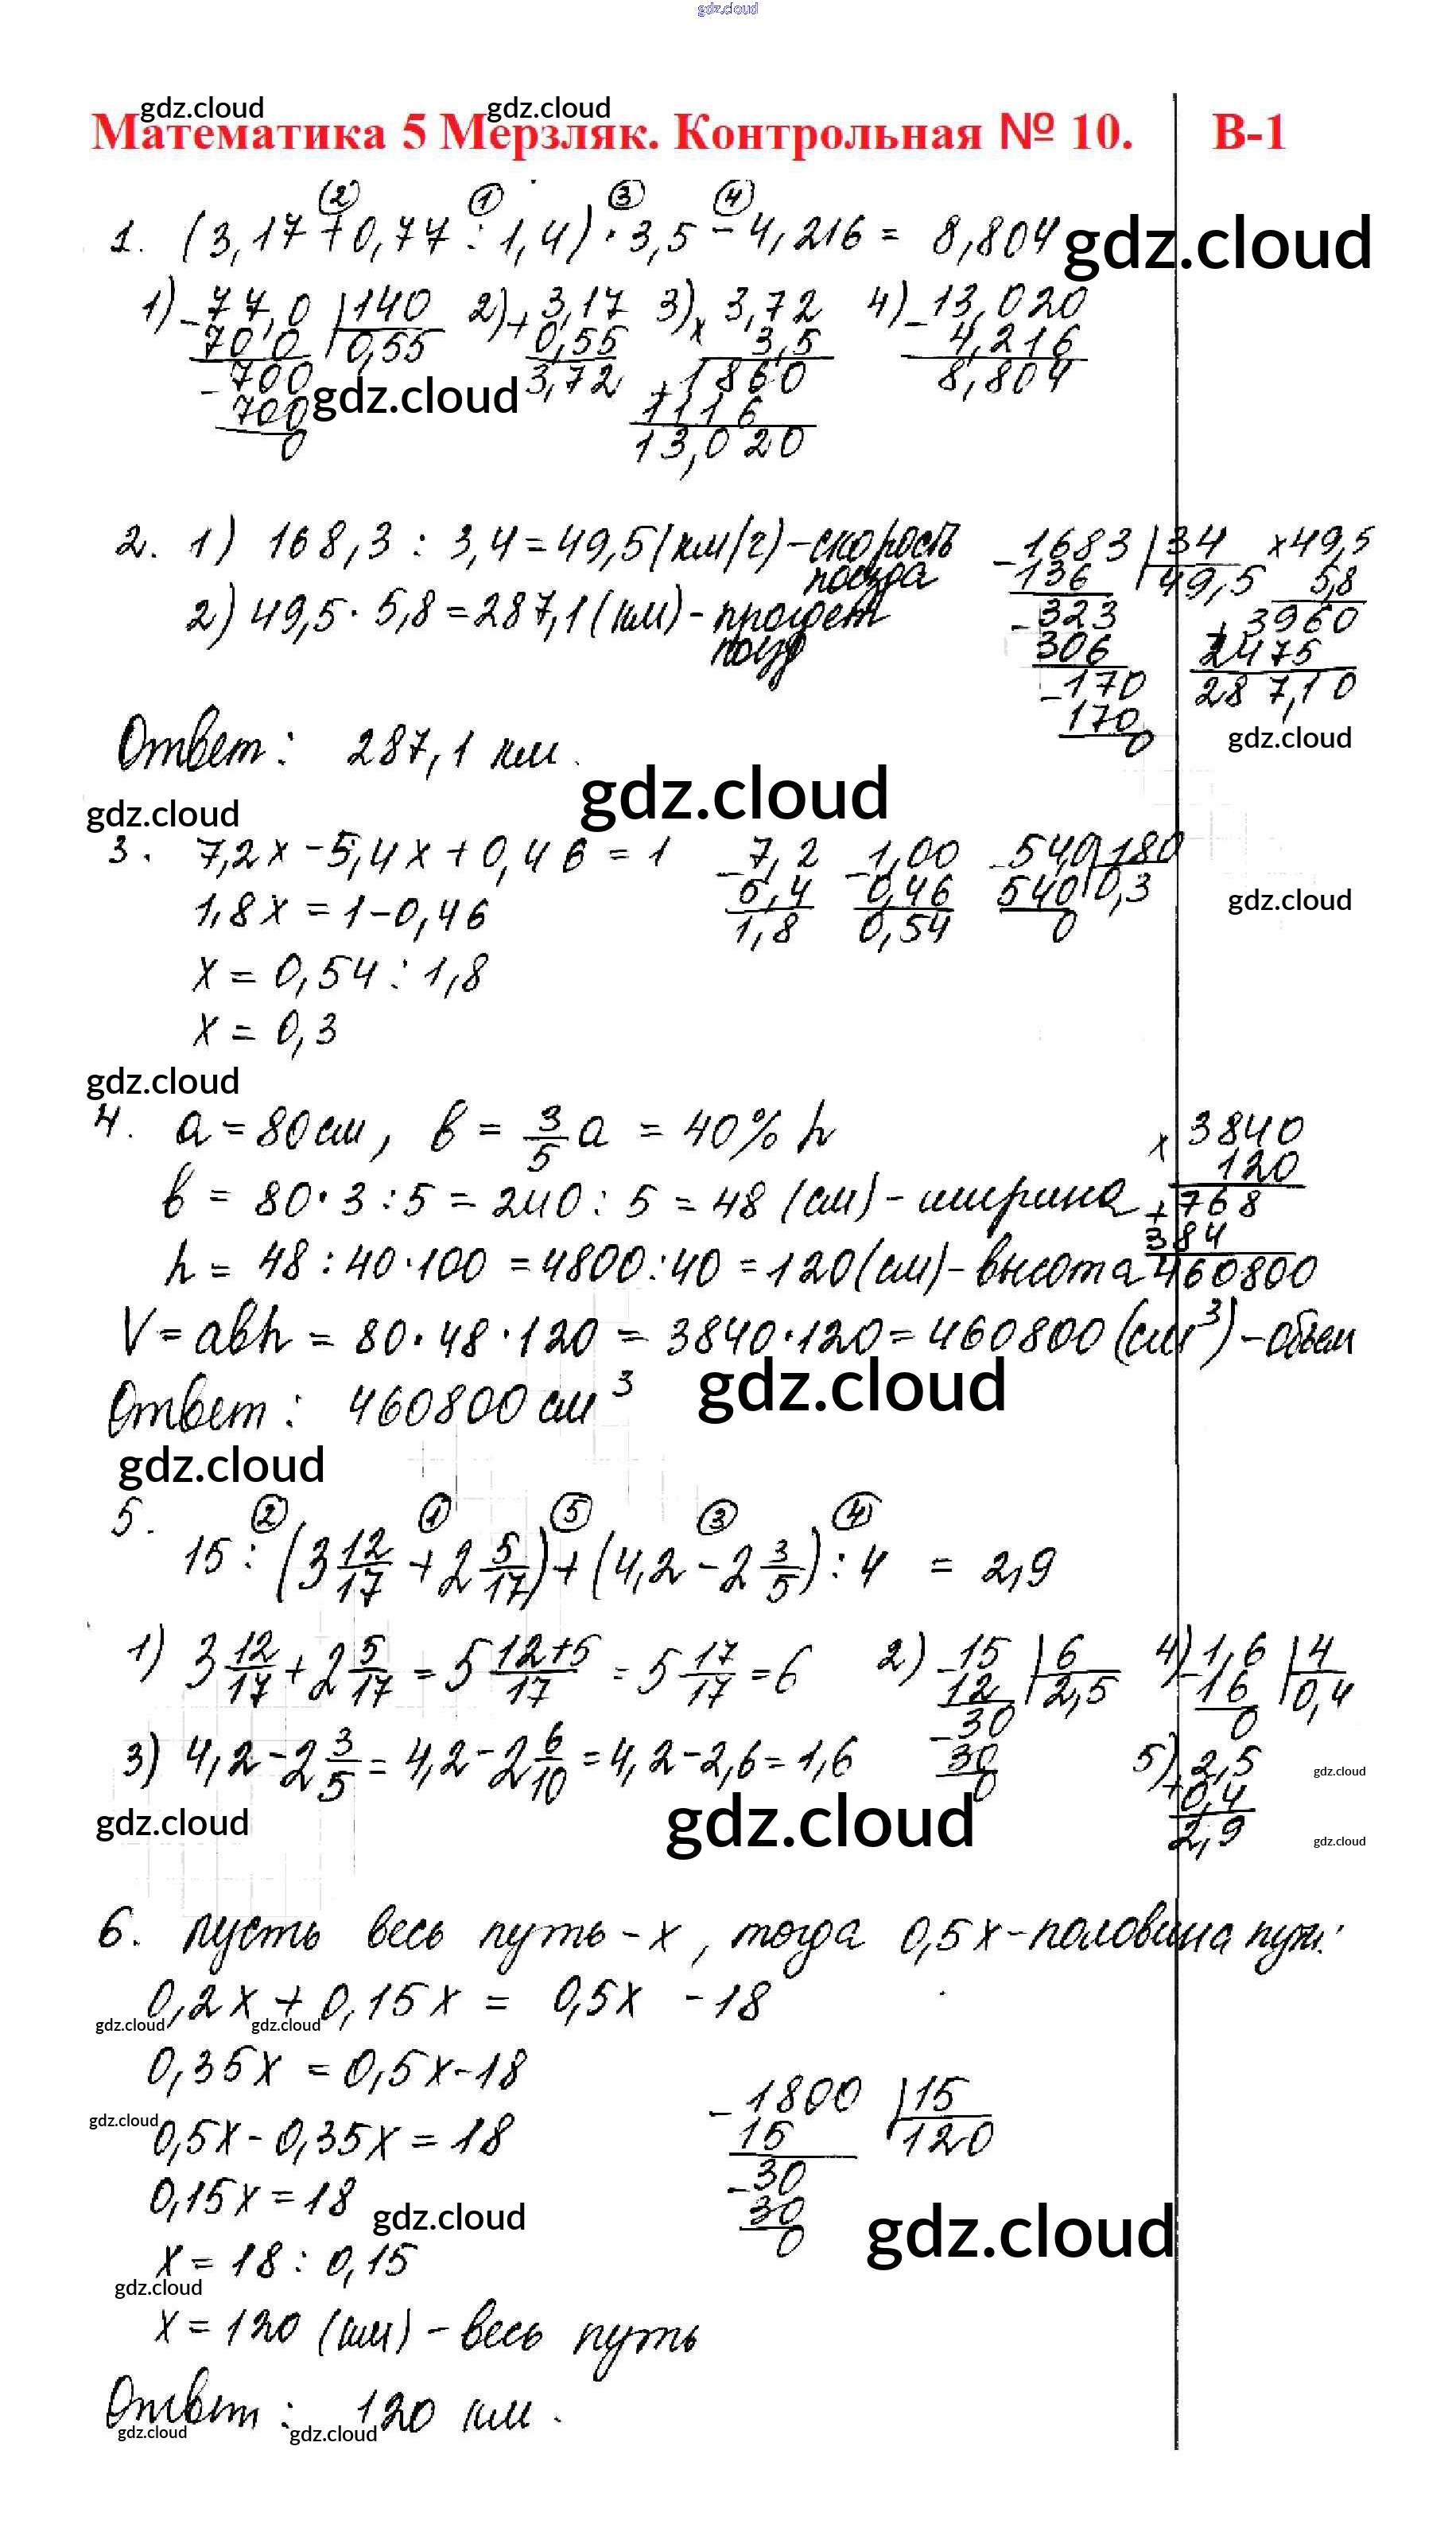 gdz.cloud
gdz.cloud gdz.cloud
Математика 5 Мерзляк. Контрольная № 10. В-1
(2) (1) (3) (4)
1. (3,17+0,77:1,4)·3,5-4,216= 8,804 gdz.cloud
1) -77,0 |140 2) +3,17 3) x 3,72 4) -13,020
70 0 0,55 0,55 3,5 4,216
-700 3,72 +1 860 8,804
gdz.cloud
700 11 1 6
0 13,020
2. 1) 168,3 : 3,4=49,5(км/г)-скорость -1683 |34 x49,5
поезда 136 49,5 5,8
2) 49,5·5,8=287,1(км)-пройдет -323 +3960
поезд 306 2475
-170 287,10
170
0
Ответ: 287,1 км.
gdz.cloud
gdz.cloud
gdz.cloud
3. 7,2x-5,4x+0,46=1 -7,2 -1,00 -540|180
1,8x=1-0,46 5,4 0,46 540 0,3
1,8 0,54 0
gdz.cloud
x=0,54:1,8
x=0,3
gdz.cloud
4. a=80см, в= 3/5 a = 40% h x 3840
120
в= 80·3:5=240:5=48 (см)-ширина +768
384
h= 48:40·100=4800:40=120(см)-высота 460800
V=авh= 80·48·120= 3840·120=460800(см³)-объем
Ответ: 460800 см³
gdz.cloud
gdz.cloud
(2) (1) (5) (3) (4)
5. 15:(3 12/17+2 5/17)+(4,2-2 3/5):4 = 2,9
1) 3 12/17+2 5/17=5 12+5/17=5 17/17=6 2) -15 |6 4) -1,6 |4
12 2,5 16 0,4
-30 0
3) 4,2-2 3/5=4,2-2 6/10=4,2-2,6=1,6 30 5) +2,5
0 0,4
2,9
gdz.cloud
gdz.cloud
gdz.cloud
gdz.cloud
6. пусть весь путь-x, тогда 0,5x-половина пути.
0,2x+0,15x = 0,5x -18
gdz.cloud gdz.cloud
0,35x=0,5x-18
-1800 |15
gdz.cloud
0,5x-0,35x=18 15 120
-30
0,15x=18 30
0
gdz.cloud
gdz.cloud
x=18:0,15
gdz.cloud
x=120 (км)-весь путь
Ответ: 120 км.
gdz.cloud gdz.cloud